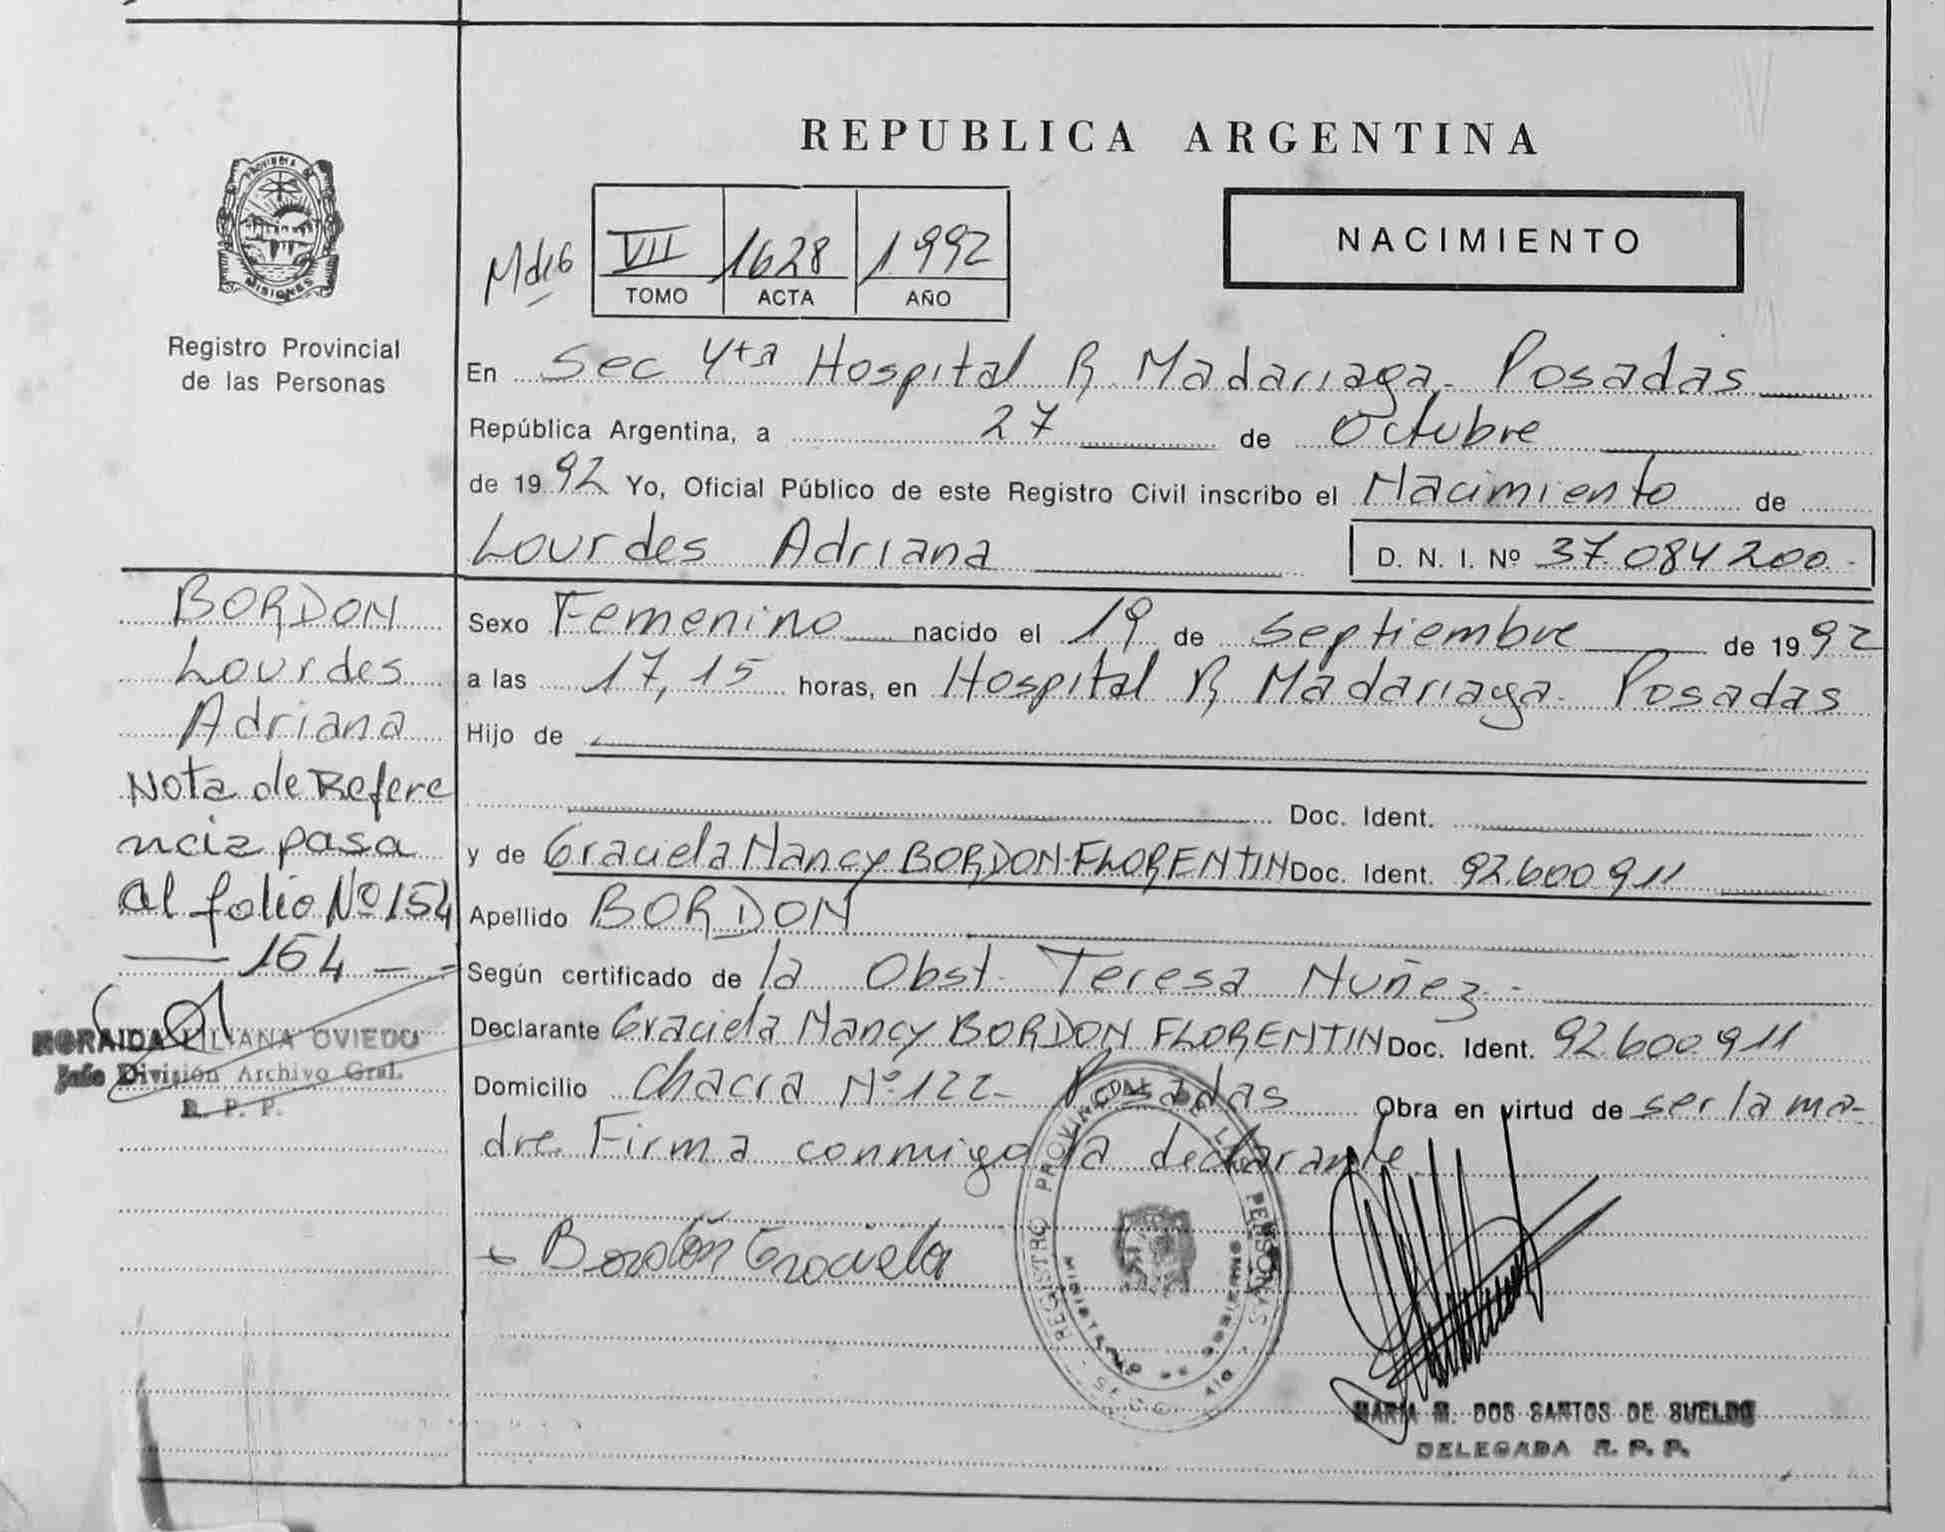 REPUBLICA ARGENTINA
PROVINCIA
MISIONES
Registro Provincial
de las Personas
VII 1628 1992
TOMO ACTA AÑO
NACIMIENTO
En Sec 4ta Hospital R. Madariaga - Posadas
República Argentina, a 27 de Octubre
de 1992 Yo, Oficial Público de este Registro Civil inscribo el Nacimiento de
Lourdes Adriana D. N. I. Nº 37.084200.-
BORDON
Lourdes
Adriana
Nota de Refere
ncia pasa
al folio Nº 154
— 154 — =
NORAIDA LILIANA OVIEDO
Jefe División Archivo Gral.
R. P. P.
Sexo Femenino nacido el 19 de Septiembre de 1992
a las 17,15 horas, en Hospital R. Madariaga - Posadas
Hijo de
Doc. Ident.
y de Graciela Nancy BORDON-FLORENTIN Doc. Ident. 92.600911
Apellido BORDON
Según certificado de la Obst. Teresa Nuñez.-
Declarante Graciela Nancy BORDON FLORENTIN Doc. Ident. 92.600.911
Domicilio Chacra Nº 122- Posadas Obra en virtud de ser la ma-
dre. Firma conmigo la declarante.
Bordón Graciela
REGISTRO PROVINCIAL DE LAS PERSONAS
MINISTERIO DE GOBIERNO
MARIA M. DOS SANTOS DE SUELDO
DELEGADA R. P. P.